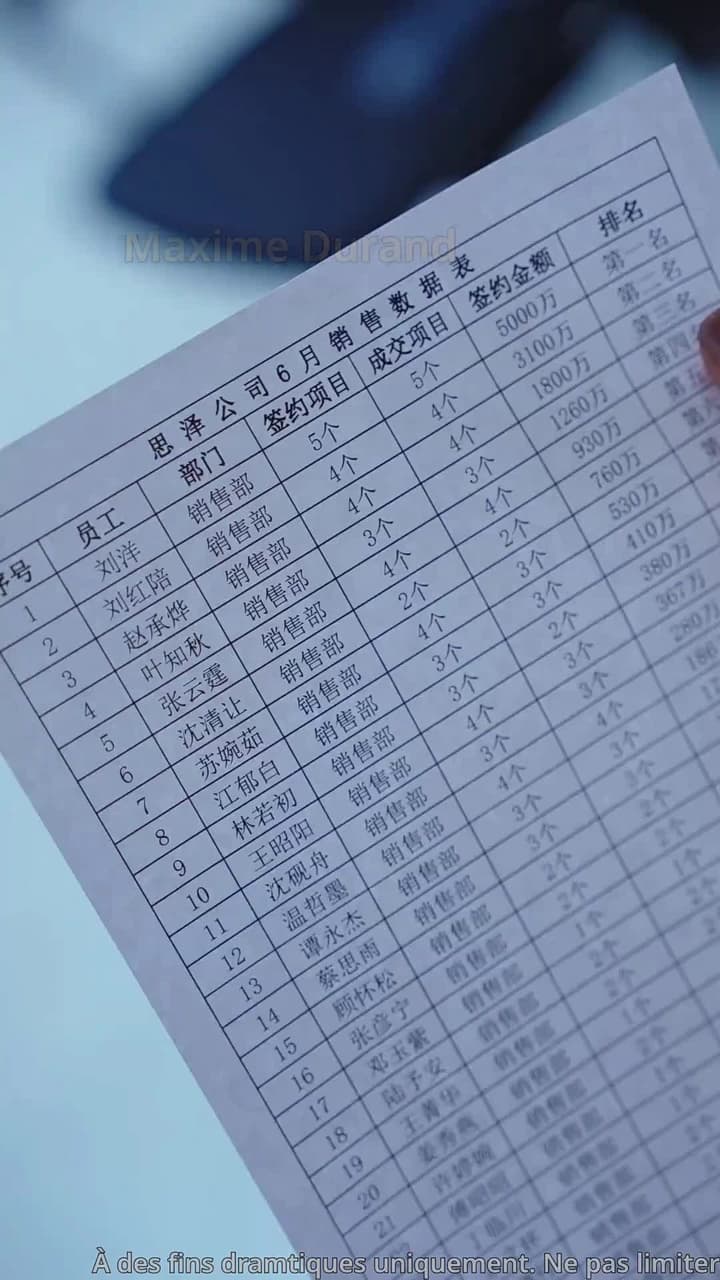 Maxime Durand
思泽公司6月销售数据表
序号 员工 部门 签约项目 成交项目 签约金额 排名
1 刘洋 销售部 5个 5个 5000万 第一名
2 刘红陪 销售部 4个 4个 3100万 第二名
3 赵承烨 销售部 4个 4个 1800万 第三名
4 叶知秋 销售部 3个 3个 1260万 第四名
5 张云霆 销售部 4个 4个 930万 第五
6 沈清让 销售部 2个 2个 760万 第六
7 苏婉茹 销售部 4个 3个 530万
8 江郁白 销售部 3个 3个 410万
9 林若初 销售部 3个 2个 380万
10 王昭阳 销售部 4个 3个 367万
11 沈砚舟 销售部 3个 3个 280万
12 温哲墨 销售部 4个 4个 186
13 谭永杰 销售部 3个 3个
14 蔡思雨 销售部 3个 3个
15 顾怀松 销售部 2个 2个
16 张彦宁 销售部 2个 2个
17 邓玉紫 销售部 1个 1个
18 陆予安 销售部 2个 2个
19 王菁华 销售部 2个
20 姜秀燕 销售部 1个
21 销售部 2个
À des fins dramtiques uniquement. Ne pas limiter